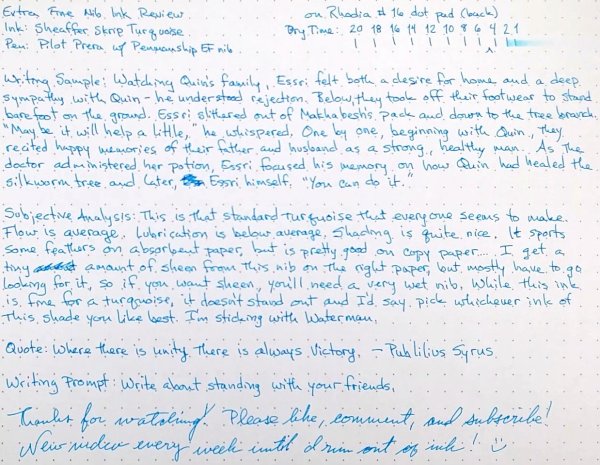 Extra Fine Nib Ink Review
on Rhodia #16 dot pad (back)
Ink: Sheaffer Skrip Turquoise
Dry Time: 20 18 16 14 12 10 8 6 4 2 1
Pen: Pilot Prera w/ Penmanship EF nib
Writing Sample: Watching Quin's family, Essri felt both a desire for home and a deep
sympathy with Quin - he understood rejection. Below, they took off their footwear to stand
barefoot on the ground. Essri slithered out of Makhabesh's pack and down to the tree branch.
"Maybe it will help a little," he whispered. One by one, beginning with Quin, they
recited happy memories of their father and husband as a strong, healthy man. As the
doctor administered her potion, Essri focused his memory on how Quin had healed the
silkworm tree and later, Essri himself. "You can do it."
Subjective Analysis: This is that standard turquoise that everyone seems to make.
Flow is average. Lubrication is below average. Shading is quite nice. It sports
some feathers on absorbent paper, but is pretty good on copy paper... I get a
tiny amount of sheen from this nib on the right paper, but mostly have to go
looking for it, so if you want sheen, you'll need a very wet nib. While this ink
is fine for a turquoise, it doesn't stand out and I'd say pick whichever ink of
this shade you like best. I'm sticking with Waterman.
Quote: Where there is unity there is always victory. - Publilius Syrus
Writing Prompt: Write about standing with your friends.
Thanks for watching! Please like, comment, and subscribe!
New video every week until I run out of ink! :)